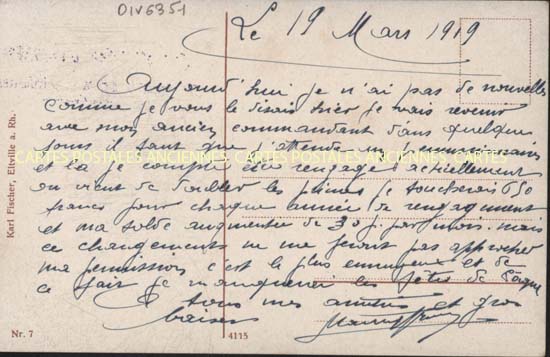 01V6351
Le 19 Mars 1919
Aujourd'hui je n'ai pas de nouvelles
comme je vous le disais hier je vais revenir
avec mon ancien commandant dans quelque
jours il faut que j'attende un
CARTES POSTALES ANCIENNES CARTES POSTALES ANCIENNES CARTES
et là je compte être rengagé actuellement
on vient de doubler les primes je toucherais
francs pour chaque année de rengagement
et ma solde augmentée de 30 f. par mois. mais
ce changements ne me ferait pas approcher
ma permission c'est le plus ennuyeux et de
ce fait je manquerai les fêtes de Pâque
à tous mes amitiés et gros
baisers
Karl Fischer, Eltville a. Rh.
Nr. 7
4115